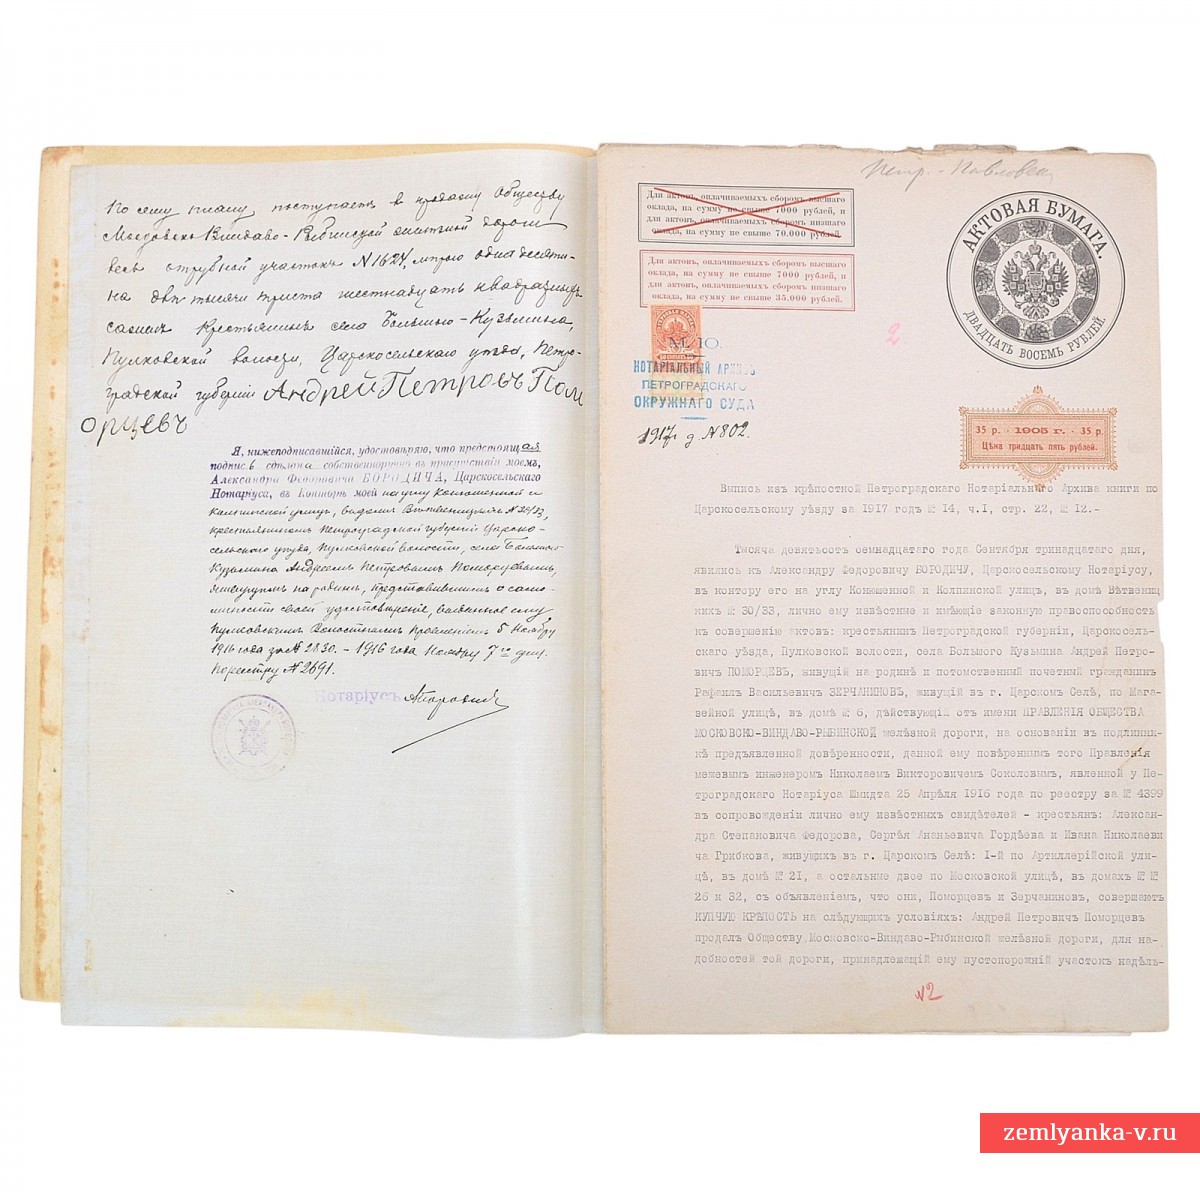 По сему плану поступает в продажу Обществу
Московско Виндаво-Рыбинской железной дороги
весь отрубной участокъ № 1624, мѣрою одна десяти-
на двѣ тысячи триста шестнадцать квадратныхъ
сажень крестьянинъ села Большого-Кузьмина,
Пулковской волости, Царскосельскаго уѣзда, Петро-
градской губерніи Андрей Петровъ Пом
орцевъ
Я, нижеподписавшійся, удостовѣряю, что предстоящая
подпись сдѣлана собственноручно въ присутствіи моемъ,
Александра Федоровича БОРОДИЧА, Царскосельскаго
Нотаріуса, въ Конторѣ моей на углу Конюшенной и
Колпинской улицъ, въ домѣ Вѣтвеницкихъ № 30/33,
крестьяниномъ Петроградской губерніи Царско-
сельскаго уѣзда, Пулковской волости, села Большого
Кузьмина Андреемъ Петровымъ Поморцевымъ,
живущимъ на родинѣ, представившимъ о само-
личности своей удостовѣреніе, выданное ему
Пулковскимъ Волостнымъ Правленіемъ 5 Ноября
1916 года за № 2830. - 1916 года Ноября 7го дня.
По реестру № 2691.
Нотаріусъ АБородичъ
Петр. - Павловск.
Для актовъ, оплачиваемыхъ сборомъ высшаго
оклада, на сумму не свыше 7000 рублей, и
для актовъ, оплачиваемыхъ сборомъ низшаго
оклада, на сумму не свыше 70.000 рублей.
Для актовъ, оплачиваемыхъ сборомъ высшаго
оклада, на сумму не свыше 7000 рублей, и
для актовъ, оплачиваемыхъ сборомъ низшаго
оклада, на сумму не свыше 35.000 рублей.
АКТОВАЯ БУМАГА.
ДВАДЦАТЬ ВОСЕМЬ РУБЛЕЙ.
2
М. 10.
НОТАРІАЛЬНЫЙ АРХИВЪ
ПЕТРОГРАДСКАГО
ОКРУЖНАГО СУДА
1917 г. д. № 802.
35 р. · 1905 г. · 35 р.
Цѣна тридцать пять рублей.
Выпись изъ крѣпостной Петроградскаго Нотаріальнаго Архива книги по
Царскосельскому уѣзду за 1917 годъ № 14, ч.I, стр. 22, № 12.-
Тысяча девятьсотъ семнадцатаго года Сентября тринадцатаго дня,
явились къ Александру Федоровичу БОРОДИЧУ, Царскосельскому Нотаріусу,
въ контору его на углу Конюшенной и Колпинской улицъ, въ домѣ Вѣтвениц
кихъ № 30/33, лично ему извѣстные и имѣющіе законную правоспособность
къ совершенію актовъ: крестьянинъ Петроградской губерніи, Царскосель-
скаго уѣзда, Пулковской волости, села Большого Кузьмина Андрей Петро-
вичъ ПОМОРЦЕВЪ, живущій на родинѣ и потомственный почетный гражданинъ
Рафаилъ Васильевичъ ЗЕРЧАНИНОВЪ, живущій въ г. Царскомъ Селѣ, по Мага-
зейной улицѣ, въ домѣ № 6, дѣйствующій отъ имени ПРАВЛЕНІЯ ОБЩЕСТВА
МОСКОВСКО-ВИНДАВО-РЫБИНСКОЙ желѣзной дороги, на основаніи въ подлинни-
кѣ предъявленной довѣренности, данной ему повѣреннымъ того Правленія
межевымъ инженеромъ Николаемъ Викторовичемъ Соколовымъ, явленной у Пе-
троградскаго Нотаріуса Шмидта 25 Апрѣля 1916 года по реестру за № 4399
въ сопровожденіи лично ему извѣстныхъ свидѣтелей - крестьянъ: Алексан-
дра Степановича Федорова, Сергѣя Ананьевича Гордѣева и Ивана Николаеви
ча Грибкова, живущихъ въ г. Царскомъ Селѣ: I-й по Артиллерійской ули-
цѣ, въ домѣ № 21, а остальные двое по Московской улицѣ, въ домахъ № №
26 и 32, съ объявленіемъ, что они, Поморцевъ и Зерчаниновъ, совершаютъ
КУПЧУЮ КРѢПОСТЬ на слѣдующихъ условіяхъ: Андрей Петровичъ Поморцевъ
продалъ Обществу Московско-Виндаво-Рыбинской желѣзной дороги, для на-
добностей той дороги, принадлежащій ему пустопорожній участокъ надѣль-
№2
zemlyanka-v.ru